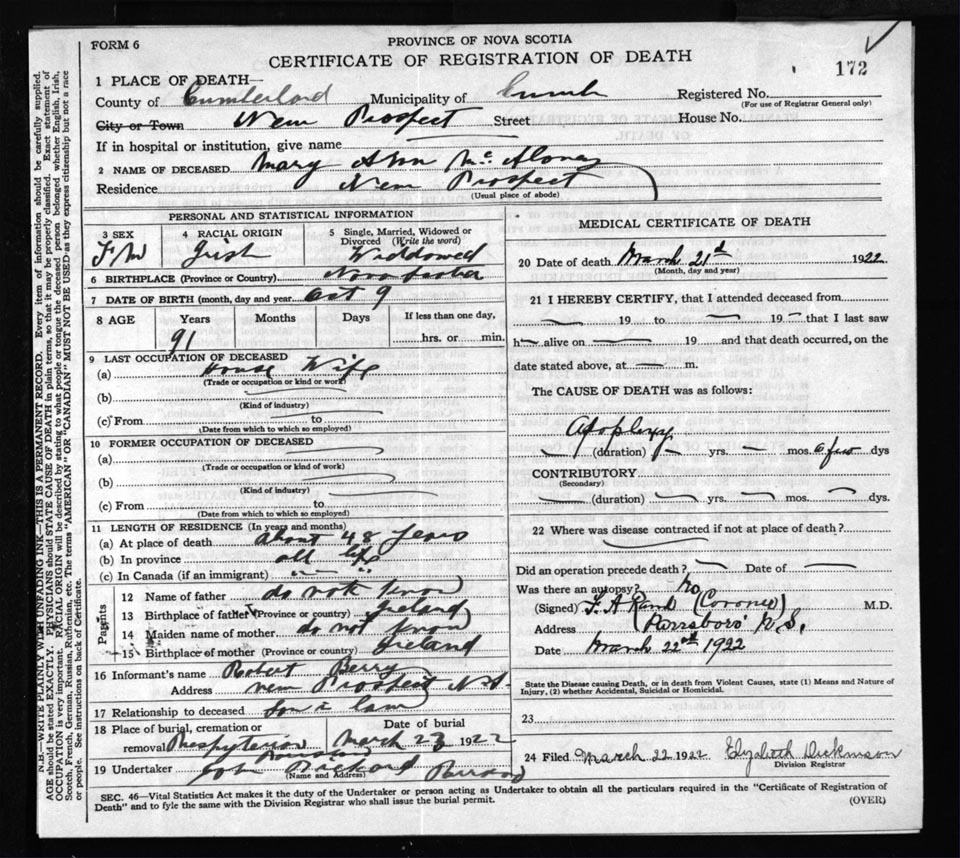 FORM 6
PROVINCE OF NOVA SCOTIA
CERTIFICATE OF REGISTRATION OF DEATH
172
1 PLACE OF DEATH—
County of Cumberland Municipality of Cumb Registered No.
(For use of Registrar General only)
City or Town New Prospect Street House No.
If in hospital or institution, give name
2 NAME OF DECEASED Mary Ann Mc Aloney
Residence New Prospect
(Usual place of abode)
PERSONAL AND STATISTICAL INFORMATION
3 SEX 4 RACIAL ORIGIN 5 Single, Married, Widowed or Divorced (Write the word)
F W Irish Widdowed
6 BIRTHPLACE (Province or Country) Nova Scotia
7 DATE OF BIRTH (month, day and year) Oct 9
8 AGE Years Months Days If less than one day,
91 hrs. or min.
9 LAST OCCUPATION OF DECEASED
(a) House Wife
(Trade or occupation or kind or work)
(b)
(Kind of industry)
(c) From to
(Date from which to which so employed)
10 FORMER OCCUPATION OF DECEASED
(a)
(Trade or occupation or kind of work)
(b)
(Kind of industry)
(c) From to
(Date from which to which so employed)
11 LENGTH OF RESIDENCE (In years and months)
(a) At place of death about 48 years
(b) In province all life
(c) In Canada (if an immigrant)
Parents
12 Name of father do not know
13 Birthplace of father (Province or country) Ireland
14 Maiden name of mother do not know
15 Birthplace of mother (Province or country) Ireland
16 Informant's name Robert Berry
Address New Prospect N.S.
17 Relationship to deceased son n law
18 Place of burial, cremation or Date of burial
removal Presbyterian March 23 1922
19 Undertaker John
(Name and Address)
MEDICAL CERTIFICATE OF DEATH
20 Date of death March 21st 1922
(Month, day and year)
21 I HEREBY CERTIFY, that I attended deceased from
19 to 19 that I last saw
h alive on 19 and that death occurred, on the
date stated above, at m.
The CAUSE OF DEATH was as follows:
Apoplexy
(duration) yrs. mos. a few dys
CONTRIBUTORY
(Secondary)
(duration) yrs. mos. dys.
22 Where was disease contracted if not at place of death?
Did an operation precede death? Date of
Was there an autopsy? No
(Signed) F. A. Rand (Coroner) M.D.
Address Parrsboro N.S.
Date March 22nd 1922
State the Disease causing Death, or in death from Violent Causes, state (1) Means and Nature of
Injury, (2) whether Accidental, Suicidal or Homicidal.
23
24 Filed March 22 1922 Elizabeth Dickinson
Division Registrar
SEC. 46—Vital Statistics Act makes it the duty of the Undertaker or person acting as Undertaker to obtain all the particulars required in the "Certificate of Registration of
Death" and to fyle the same with the Division Registrar who shall issue the burial permit.
(OVER)
N.B.—WRITE PLAINLY WITH UNFADING INK—THIS IS A PERMANENT RECORD. Every item of information should be carefully supplied.
AGE should be stated EXACTLY. PHYSICIANS should STATE CAUSE OF DEATH in plain terms, so that it may be properly classified. Exact statement of
OCCUPATION is very important. RACIAL ORIGIN will be described by stating to what people or tongue the deceased person belonged whether English, Irish,
Scotch, French, German, Russian, Ruthenian, etc. The terms "AMERICAN" OR "CANADIAN" MUST NOT BE USED as they express citizenship but not a race
or people. See instructions on back of Certificate.